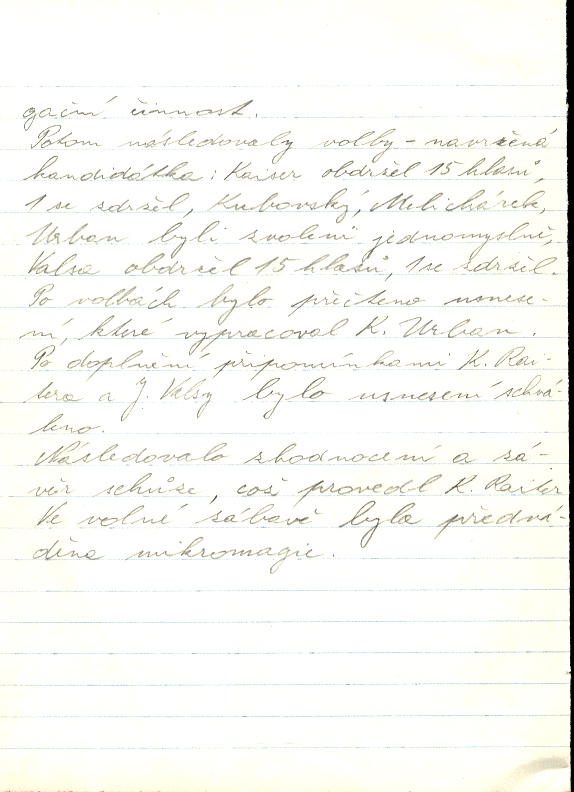 gační činnost.
Potom následovaly volby - navržená
kandidátka: Kaiser obdržel 15 hlasů,
1 se zdržel, Kubovský, Melichárek,
Urban byli zvoleni jednomyslně,
Valsa obdržel 15 hlasů, 1 se zdržel.
Po volbách bylo přečteno usnese-
ní, které vypracoval K. Urban.
Po doplnění připomínkami K. Rai-
tera a J. Valsy bylo usnesení schvá-
leno.
Následovalo zhodnocení a zá-
věr schůze, což provedl K. Raiter
Ve volné zábavě byla předvá-
děna mikromagie.